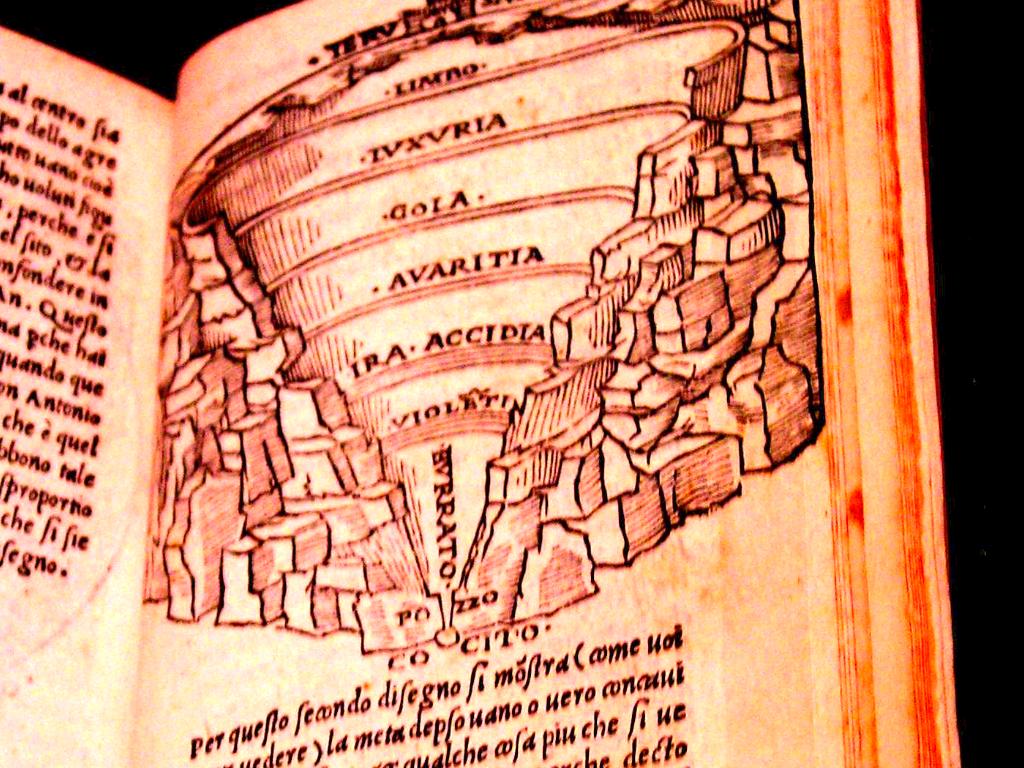 s al centro sia
po dello agre
am uano cioè
ho uolun sigu
, perche è si
el sito, & la
nfondere in
An. Questo
na pche hai
quando que
on Antonio
che è quel
bbono tale
sproporno
che si sie
segno.
LIMBO.
.LVXVRIA
.GOLA.
.AVARITIA
IRA. ACCIDIA
VIOLĒTI
BVRRATO.
POZZO
COCITO.
Per questo secondo disegno si mōstra (come uoi
uedere) la meta depso uano o uero concaui
qualche cosa piu che si ue
decto